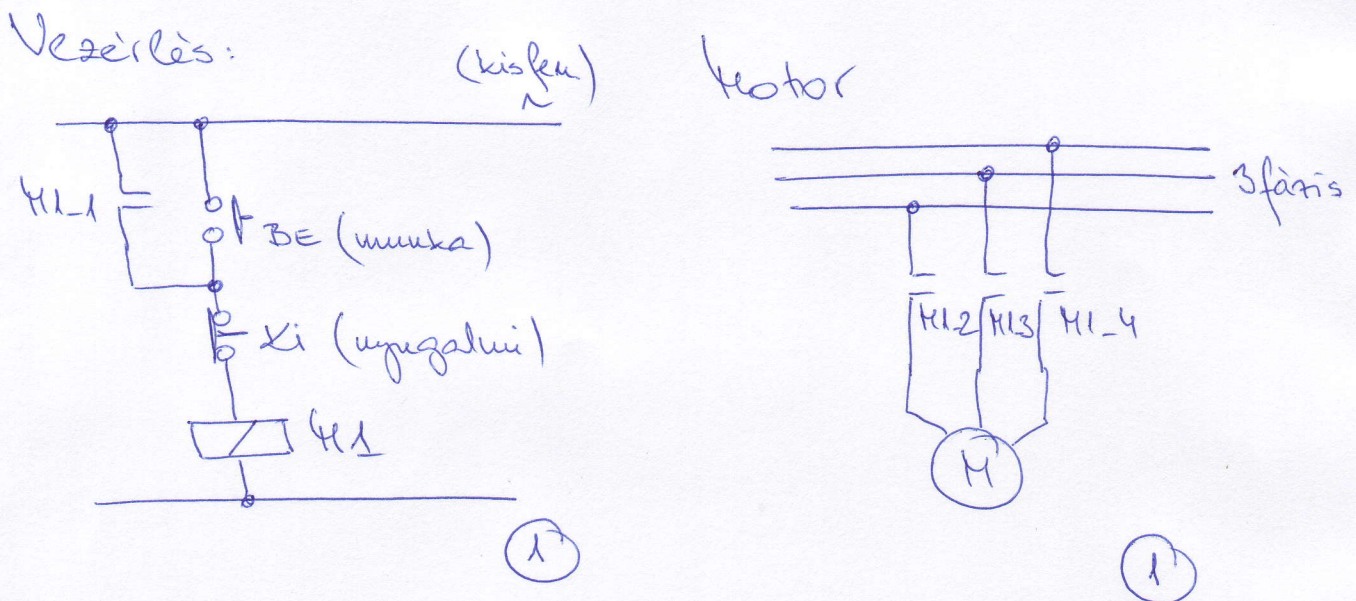 Vezérlés:
(kisfesz)
~
M1_1
BE (munka)
Ki (nyugalmi)
M1
1
Motor
3 fázis
M1_2 M1_3 M1_4
M
1